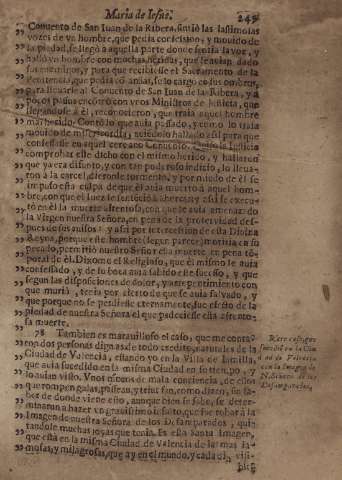 Maria de Iesus. 249
Conuento de San Iuan de la Ribera, sintiò las lastimosas
vozes de vn hombre, que pedia confession, y mouido de
la piedad, se llegò à aquella parte donde sentia la voz, y
hallò vn hombre con muchas heridas, que le auian dado
sus enemigos, y para que recibiesse el Sacramento de la
Penitencia, que pedia con ansias, se lo cargò en los ombros,
para lleuarle al Conuento de San Iuan de la Ribera, y à
pocos passos encontrò con vnos Ministros de Iusticia, que
llegandose à èl, reconocieron, que traia aquel hombre
mal herido. Contòlo que auia passado, y como lo traia
mouido de misericordia, auiendolo hallado assi para que
confessasse en aquel cercano Cenobio. Quiso la Iusticia
comprobar este dicho con el mismo herido, y hallaron
que ya era difunto, y con tan poderoso indicio, lo lleua-
ron à la carcel, dieronle tormento, y por miedo de èl se
impuso esta culpa de que èl auia muerto à aquel hom-
bre, con que el Iuez le sentenciò à ahorcar, y assi se execu-
tò en èl la muerte afrentosa, con que le auia amenazado
la Virgen nuestra Señora, en pena de la proteruidad des-
pues de sus auisos: y assi por intercession de esta Diuina
Reyna, porque este hombre (segun parece) moria en su
pecado, permitiò nuestro Señor essa muerte en pena tẽ-
poral de èl. Dixome el Religioso, que èl mismo le auia
confessado, y de su boca auia sabido este sucesso, y que
segun las disposiciones de dolor, y arrepentimiento con
que muriò, tenia por cierto de que se auia saluado, y
que porque no se perdiesse eternamente, fue efecto de la
piedad de nuestra Señora el que padeciesse essa afrento-
sa muerte.
78 Tambien es marauilloso el caso, que me conta-
ron dos personas dignas de todo credito, naturales de la
Ciudad de Valencia, estando yo en la Villa de Iumilla,
que auia sucedido en la misma Ciudad en su tiempo, y
lo auian visto. Vnos moços de mala conciencia, de estos
que rompen galas, passean, y triunfan, como dizen, sin sa-
ber de donde viene esto, aunque bien se sabe, se deter-
minaron à hazer vn grauissimo insulto, que fue robar à la
Imagen de nuestra Señora de los Desamparados, qui-
tandole muchas joyas que tenia. Es esta Santa Imagen,
que està en la misma Ciudad de Valencia, de las mas fa-
mosas, y milagrosas, que ay en el mundo, y cada dia, visi-
ble
sucedido en la Ciu-
dad de Valencia
con la Imagen de
N. Señora de los
Desamparados.